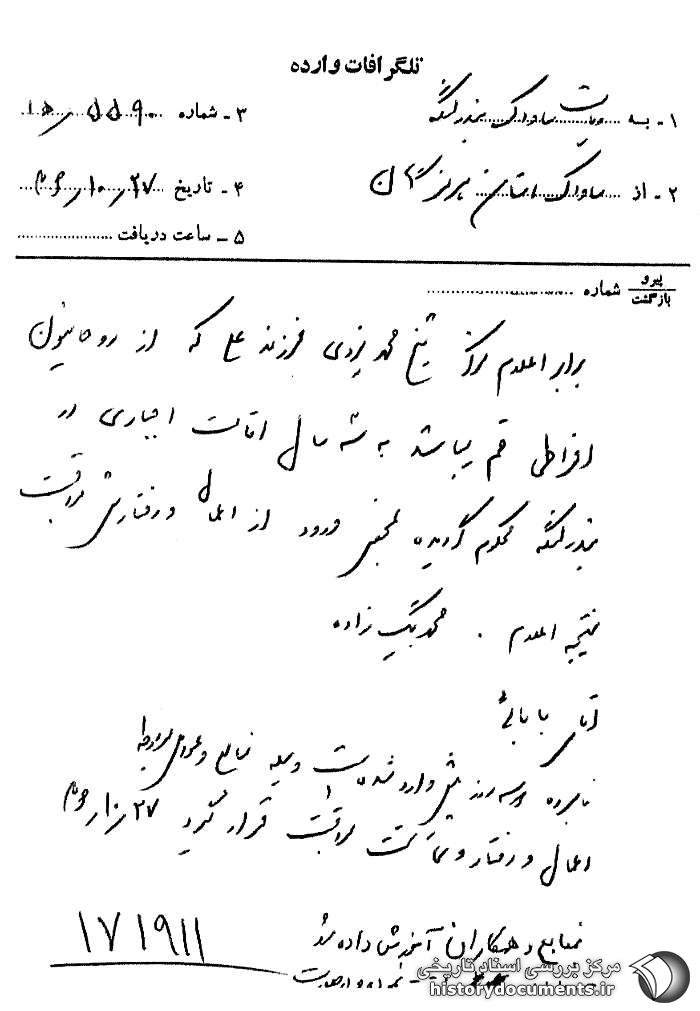 تلگرافات وارده
۱ - به ریاست ساواک بندرلنگه
۳ - شماره ۵۵۹۰/ ۱۵ﻫ
۲ - از ساواک استان هرمزگان
۴ - تاریخ ۲۷/ ۱۰/
۵ - ساعت دریافت
پیرو
بازگشت
شماره
برابر اعلام مرکز شیخ محمد یزدی فرزند علی که از روحانیون
افراطی قم میباشد به سه سال اقامت اجباری در
بندرلنگه محکوم گردیده بمحض ورود از اعمال و رفتارش مراقبت
نتیجه اعلام . محمد بیگ زاده
آقای بابائی
نامبرده سه روز پیش وارد شده است وسیله منابع و عوامل مربوطه
اعمال و رفتار و تماست مراقبت قرار گیرد ۲۷/ ۱۰/
منابع و همکاران آموزش داده شد
۱۷۱۹۱۱
مرکز بررسی اسناد تاریخی
historydocuments.ir